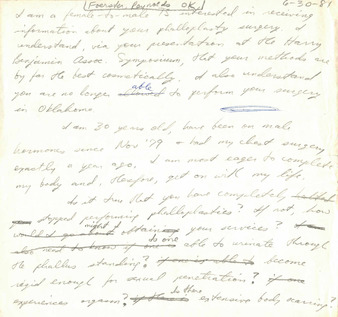 (Forester Reynolds OK) 6-30-81
I am a female-to-male TS interested in receiving
information about your phalloplasty surgery. I
understand, via your presentation at the Harry
Benjamin Assoc. Symposium, that your methods are
by far the best cosmetically. I also understand
you are no longer able to perform your surgery
in Oklahoma.
I am 30 years old, have been on male
hormones since Nov '79 + had my chest surgery
exactly a year ago. I am most eager to complete
my body and, therefore, get on with my life.
Is it true that you have completely
stopped performing phalloplasties? If not, how
might I obtain your services?
able to urinate through
the phallus standing? become
rigid enough for sexual penetration?
experience orgasm? Is there extensive body scarring?